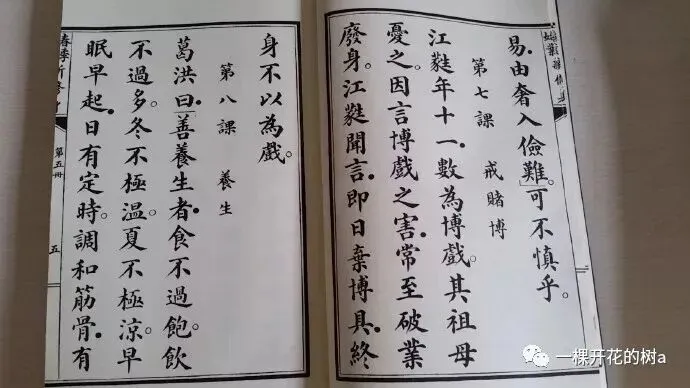 易。由奢入儉難。」可不慎乎。
第七課 戒賭博
江㲄年十一。數為博戲。其祖母
憂之。因言博戲之害。常至破業
廢身。江㲄聞言。即日棄博具。終
身不以為戲。
第八課 養生
葛洪曰。「善養生者。食不過飽。飲
不過多。冬不極溫。夏不極涼。早
眠早起。日有定時。調和筋骨。有
第五冊
五
一棵开花的树a